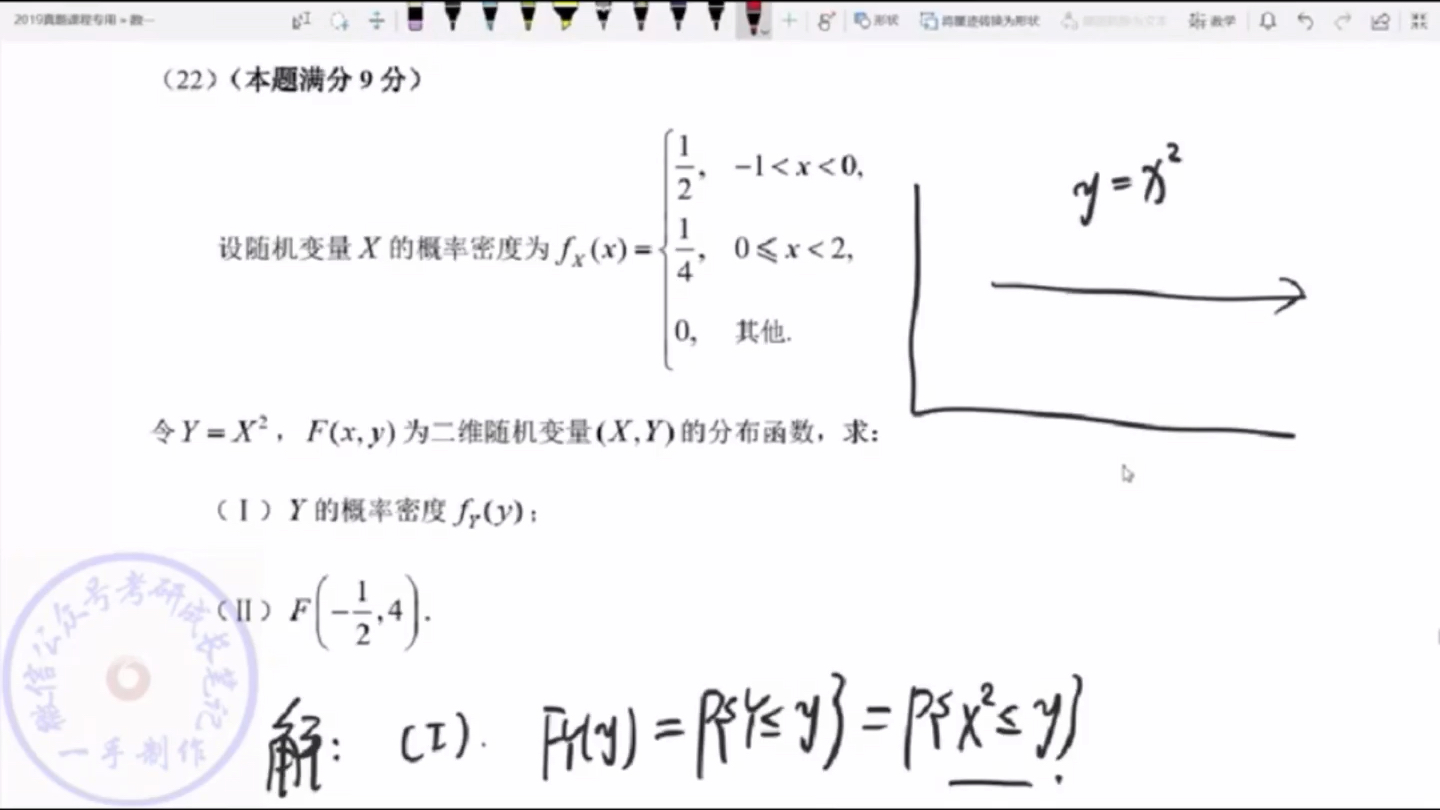 2019真题课程专用 » 数一
形状 将墨迹转换为形状 数学
（22）（本题满分 9 分）
1/2, −1 < x < 0,
设随机变量 X 的概率密度为 f_X(x) = { 1/4, 0 ⩽ x < 2,
0, 其他.
y = x²
令 Y = X², F(x, y) 为二维随机变量 (X, Y) 的分布函数，求：
（Ⅰ）Y 的概率密度 f_Y(y)；
（Ⅱ）F(−1/2, 4).
微信公众号考研成长笔记
一手制作
解: (I). F_Y(y) = P{Y ≤ y} = P{X² ≤ y}